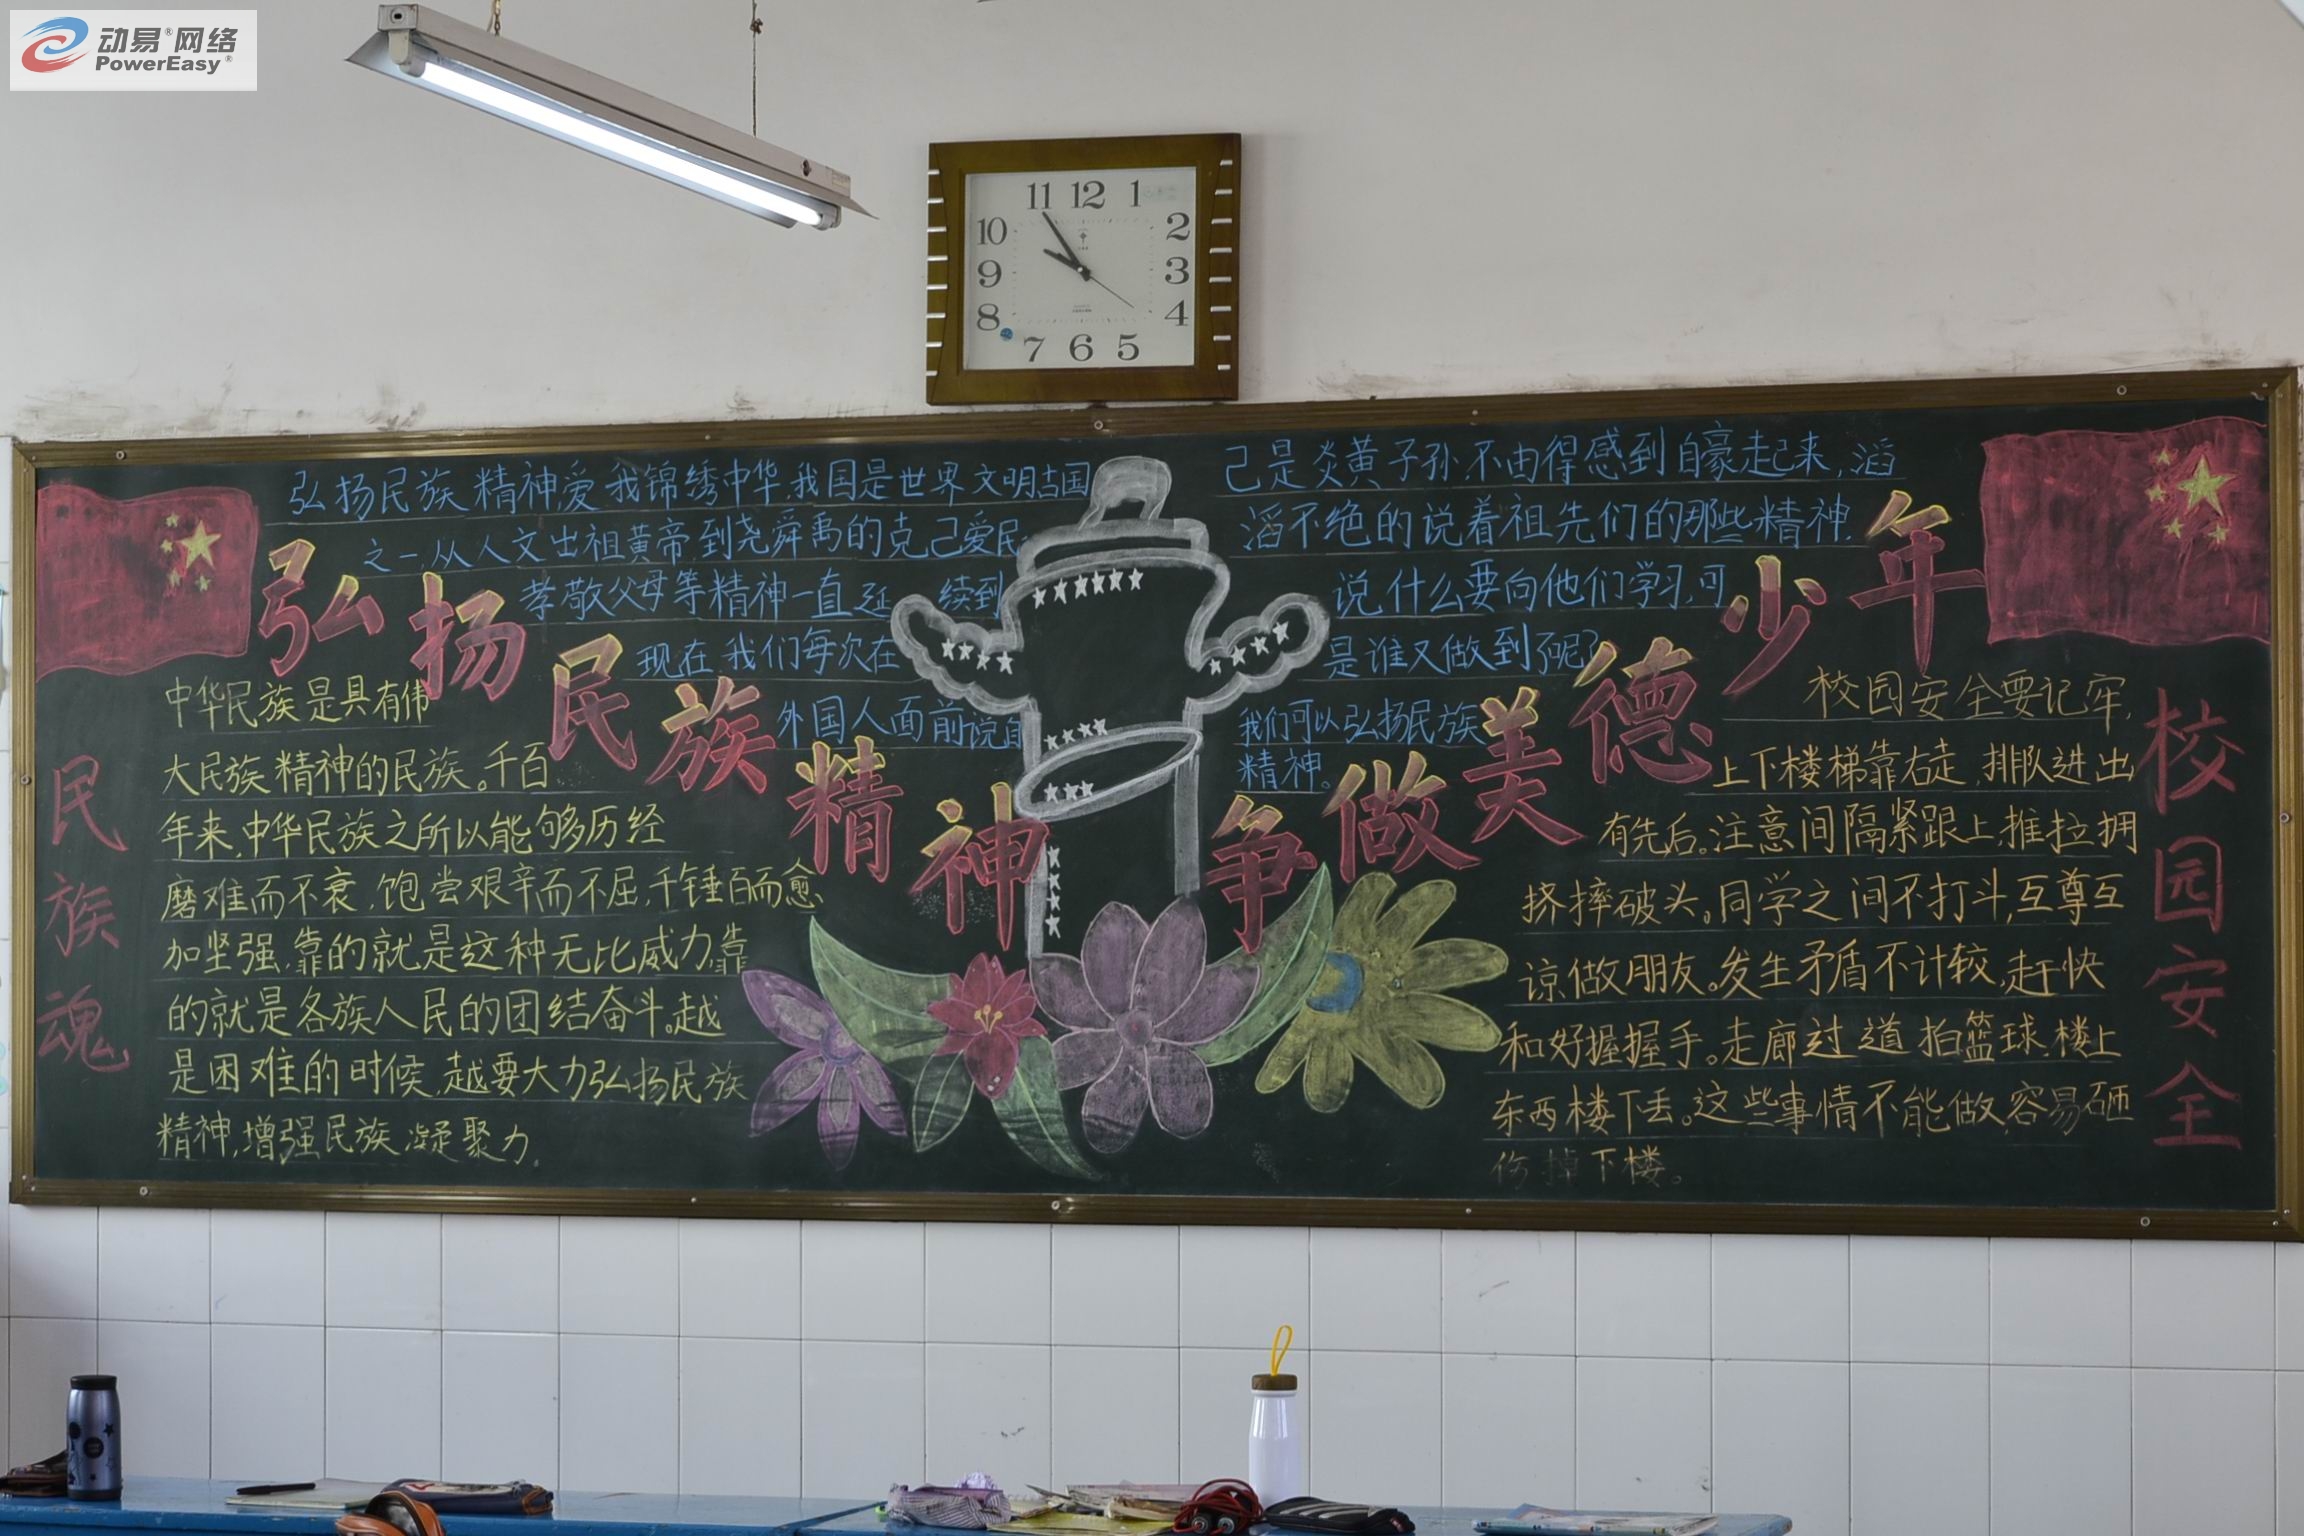 动易®网络
PowerEasy®
11 12 1
10 2
9 3
8 4
7 6 5
弘扬民族精神争做美德少年
弘扬民族精神,爱我锦绣中华,我国是世界文明古国
之一,从人文出祖黄帝到尧舜禹的克己爱民
孝敬父母等精神一直延续到
现在,我们每次在
外国人面前说自
己是炎黄子孙,不由得感到自豪走起来,滔
滔不绝的说着祖先们的那些精神,
说,什么要向他们学习,可
是谁又做到了呢?
我们可以弘扬民族
精神。
民族魂
中华民族是具有伟
大民族精神的民族。千百
年来,中华民族之所以能够历经
磨难而不衰,饱尝艰辛而不屈,千锤百而愈
加坚强,靠的就是这种无比威力,靠
的就是各族人民的团结奋斗。越
是困难的时候,越要大力弘扬民族
精神,增强民族凝聚力.
校园安全
校园安全要记牢,
上下楼梯靠右走,排队进出
有先后。注意间隔紧跟上,推拉拥
挤摔破头。同学之间不打斗,互尊互
谅做朋友。发生矛盾不计较,赶快
和好握握手。走廊过道拍篮球,楼上
东西楼下丢。这些事情不能做,容易砸
伤掉下楼。